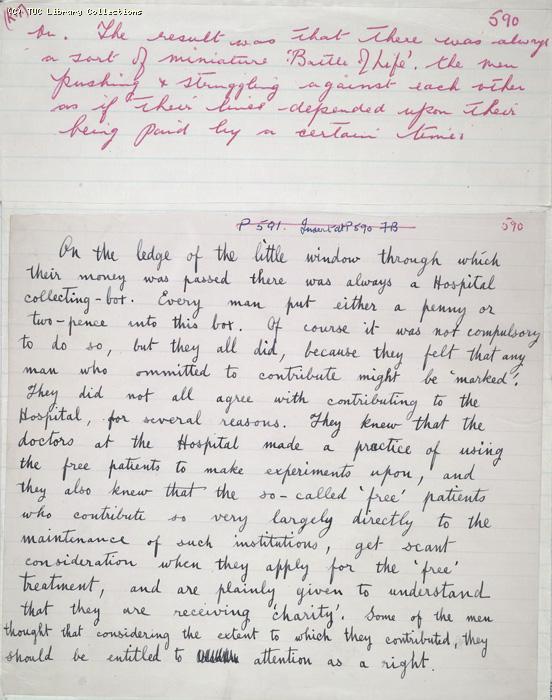 (C) TUC Library Collections
590
on. The result was that there was always
a sort of miniature 'Battle of Life'. the men
pushing & struggling against each other
as if their lives depended upon their
being paid by a certain time.
P 591. Insert at P 590 7B
590
On the ledge of the little window through which
their money was passed there was always a Hospital
collecting-box. Every man put either a penny or
two-pence into this box. Of course it was not compulsory
to do so, but they all did, because they felt that any
man who ommitted to contribute might be 'marked'.
They did not all agree with contributing to the
Hospital, for several reasons. They knew that the
doctors at the Hospital made a practice of using
the free patients to make experiments upon, and
they also knew that the so-called 'free' patients
who contribute so very largely directly to the
maintenance of such institutions, get scant
consideration when they apply for the 'free'
treatment, and are plainly given to understand
that they are receiving 'charity'. Some of the men
thought that considering the extent to which they contributed, they
should be entitled to attention as a right.